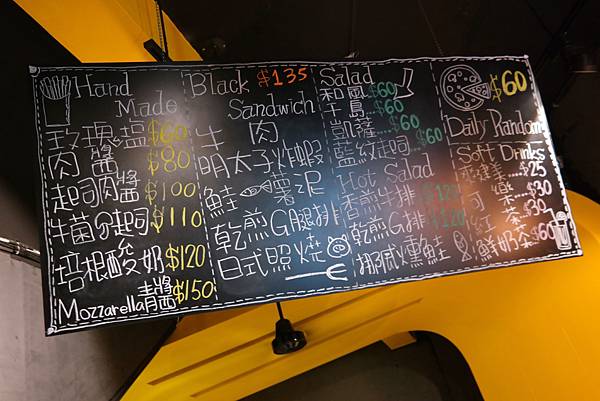 Hand
Made
玫瑰塩 $60
肉醬 $80
起司肉醬 $100
牛菌分起司 $110
培根酸奶 $120
Mozzarella 青醬 $150
Black $135
Sandwich
牛肉
明太子炸蝦
鮭薯泥
乾煎G腿排
日式照燒
Salad
和風 $60
千島 $60
凱薩 $60
藍紋起司 $60
Hot Salad
香煎牛排 $120
乾煎G排 $120
挪威煙燻鮭
$60
Daily Random
Soft Drinks
$25
可樂 $30
紅茶 $30
鮮奶茶 $60